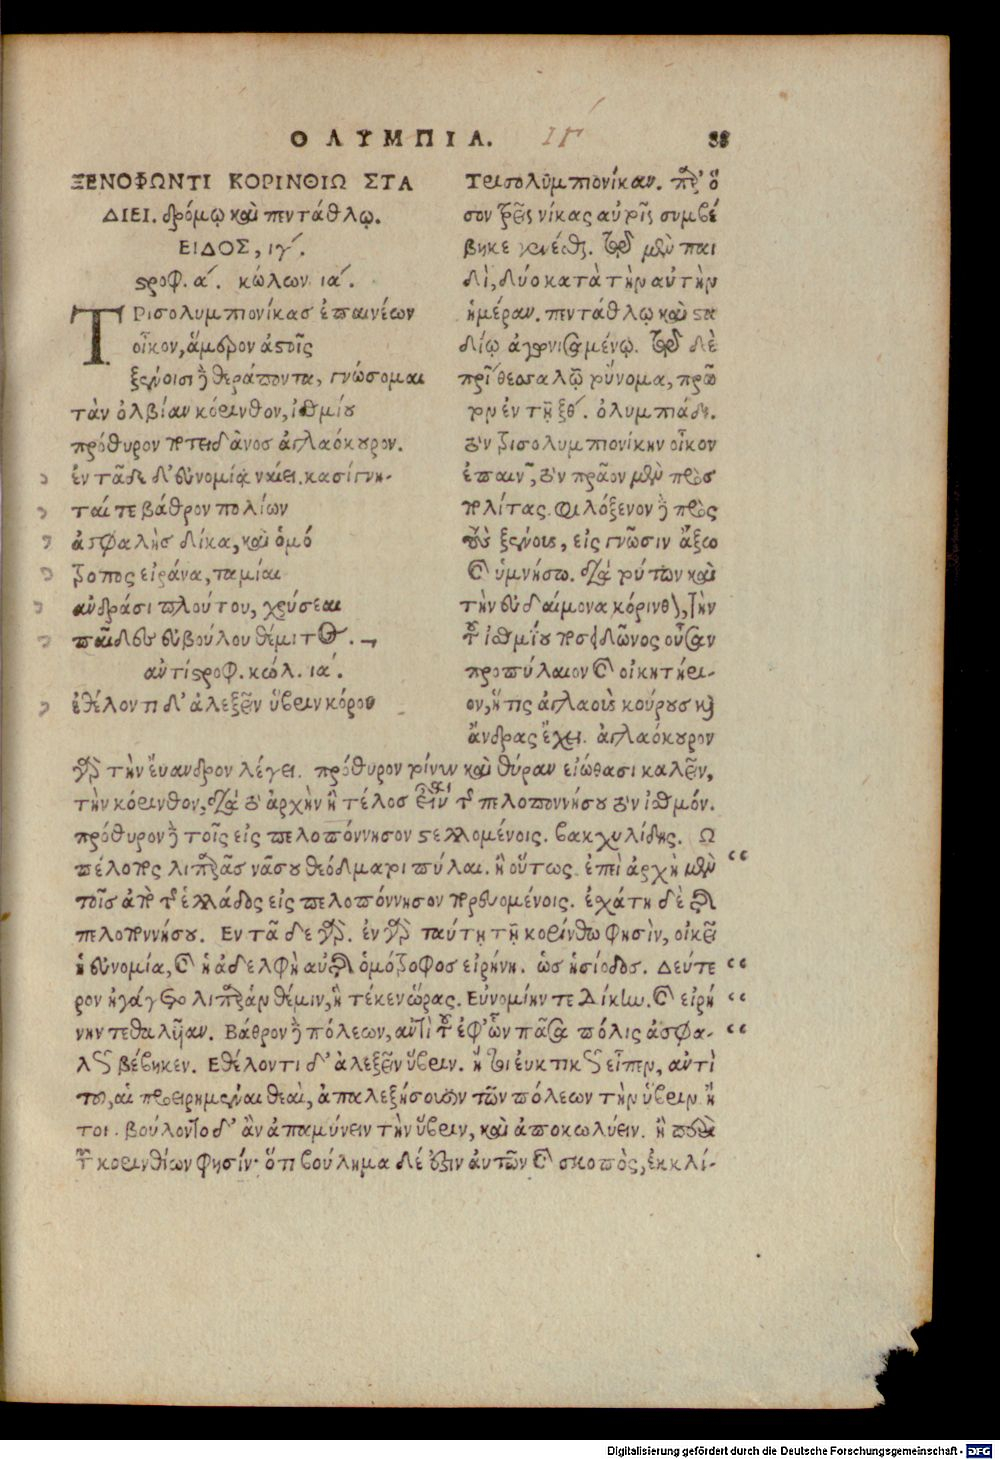 ΟΛΥΜΠΙΑ. ΙΓ 38
ΞΕΝΟΦΩΝΤΙ ΚΟΡΙΝΘΙΩ ΣΤΑ
ΔΙΕΙ. δρόμῳ καὶ πεντάθλῳ.
ΕΙΔΟΣ, ιγ΄.
στροφ. α΄. κώλων ια΄.
ΤΡισολυμπιονίκασ ἐπαινέων
οἶκον, ἅμερον ἀστοῖς
ξένοισι δὲ θεράποντα, γνώσομαι
τὰν ὀλβίαν κόρινθον, ἰσθμίου
πρόθυρον ποτειδᾶνος ἀγλαόκουρον.
ἐν τᾶδε δ' εὐνομία ναίει. κασίγνη-
ταί τε βάθρον πολίων
ἀσφαλὴσ δίκα, καὶ ὁμό
τροπος εἰράνα, ταμίαι
ανδράσι πλούτου, χρύσεαι
παῖδες εὐβούλου θέμιτος.
αντίστροφ. κώλ. ια΄.
ἐθέλοντι δ' ἀλεξεῖν ὕβριν κόρου
Τρισολυμπιονίκαν. παρ' ὅ
σον τρεῖς νίκας αὐτοῖς συμβέ
βηκε γενέσθαι. τῷ μὲν παι
δὶ, δύο κατὰ τὴν αὐτὴν
ἡμέραν. πεντάθλῳ καὶ στα
δίῳ ἀγωνισαμένῳ. τῷ δὲ
πατρὶ θεσσαλῷ τοὔνομα, πρῶ
τον ἐν τῇ ξθ΄. ὀλυμπιάδι.
τὸν τρισολυμπιονίκην οἶκον
ἐπαινῶν, τὸν πρᾶον μὲν πρὸσ
πολίτας. φιλόξενον δὲ πρὸς
τοὺς ξένους, εἰς γνῶσιν ἄξω
καὶ ὑμνήσω. διὰ τούτων καὶ
τὴν εὐδαίμονα κόρινθον, τὴν
τοῦ ἰσθμίου ποσειδῶνος οὖσαν
προπύλαιον καὶ οἰκητήρι-
ον, ἥτις ἀγλαοὺς κούρουσ καὶ
ἄνδρας ἔχει. ἀγλαόκουρον
γὰρ τὴν ἔυανδρον λέγει. πρόθυρον τοίνυν καὶ θύραν εἰώθασι καλεῖν,
τὴν κόρινθον, διὰ τὸ ἀρχὴν ἢ τέλοσ εἶναι τῆς πελοποννήσου τὸν ἰσθμόν.
πρόθυρον δὲ τοῖς εἰς πελοπόννησον στελλομένοις. βακχυλίδης. Ω
πέλοπος λιπαρᾶς νάσου θεόδματοι πύλαι. ἢ οὕτως. ἐπεὶ ἀρχὴ μὲν
τοῖσ ἀπὸ τῆς ἑλλάδος εἰς πελοπόννησον πορευομένοις. ἐσχάτη δὲ διὰ
πελοποννήσου. Εν τᾶδε γάρ. ἐν γὰρ ταύτῃ τῇ κορίνθω φησὶν, οἰκεῖ
ἡ εὐνομία, καὶ ἡ ἀδελφὴ αὐτῆς ὁμότροφος εἰρήνη. ὡς ἡσίοδος. Δεύτε
ρον ἠγάγετο λιπαρὰν θέμιν, ἣ τέκεν ὥρας. Εὐνομίην τε Δίκην. καὶ εἰρή
νην τεθαλυῖαν. Βάθρον δὲ πόλεων, αντὶ τοῦ ἐφ' ὧν πᾶσα πόλις ἀσφα-
λῶς βέβηκεν. Εθέλοντι δ' ἀλεξεῖν ὕβριν. ἤτοι ἐυκτικῶς εἶπεν, αντὶ
τοῦ, αἱ προειρημέναι θεαὶ, ἀπαλεξήσουσιν τῶν πόλεων τὴν ὕβριν. ἤ
τοι. βούλονται δ' ἂν ἀπαμύνειν τὴν ὕβριν, καὶ ἀποκωλύειν. ἢ περὶ
τῶν κορινθίων φησίν· ὅτι βούλημα δέ ἐστιν ἀυτῶν καὶ σκοπὸς, ἐκκλί-
Digitalisierung gefördert durch die Deutsche Forschungsgemeinschaft - DFG